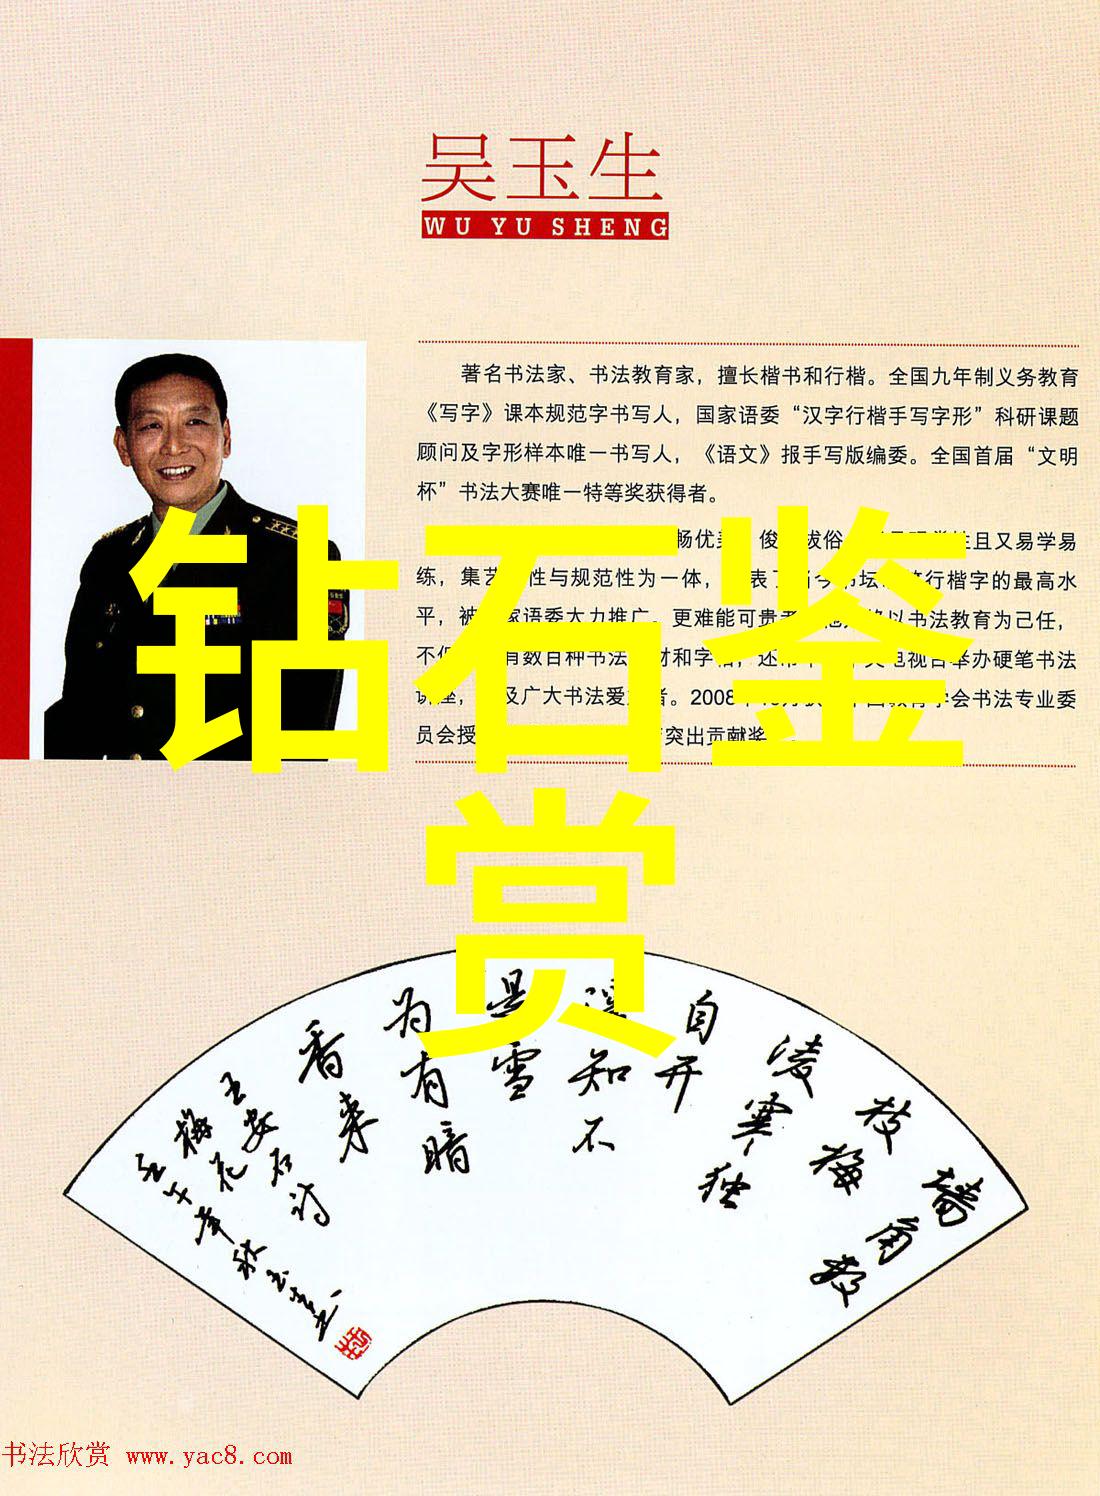 吴玉生
WU YU SHENG
著名书法家、书法教育家，擅长楷书和行楷。全国九年制义务教育
《写字》课本规范字书写人，国家语委“汉字行楷手写字形”科研课题
顾问及字形样本唯一书写人，《语文》报手写版编委。全国首届“文明
杯”书法大赛唯一特等奖获得者。
且又易学易
练，集艺 性与规范性为一体， 行楷字的最高水
平，被 家语委大力推广。更难能可贵 以书法教育为己任，
不 有数百种书法 材和字帖， 电视台举办硬笔书法
讲座， 及广大书法爱 者。2008年 学会书法专业委
员会授 突出贡献奖
钻石鉴
赏
墙角数
枝梅
凌寒独
自开
遥知不
是雪
为有暗
香来
王安石诗
梅花
壬午年秋玉生书
书法欣赏 www.yac8.com